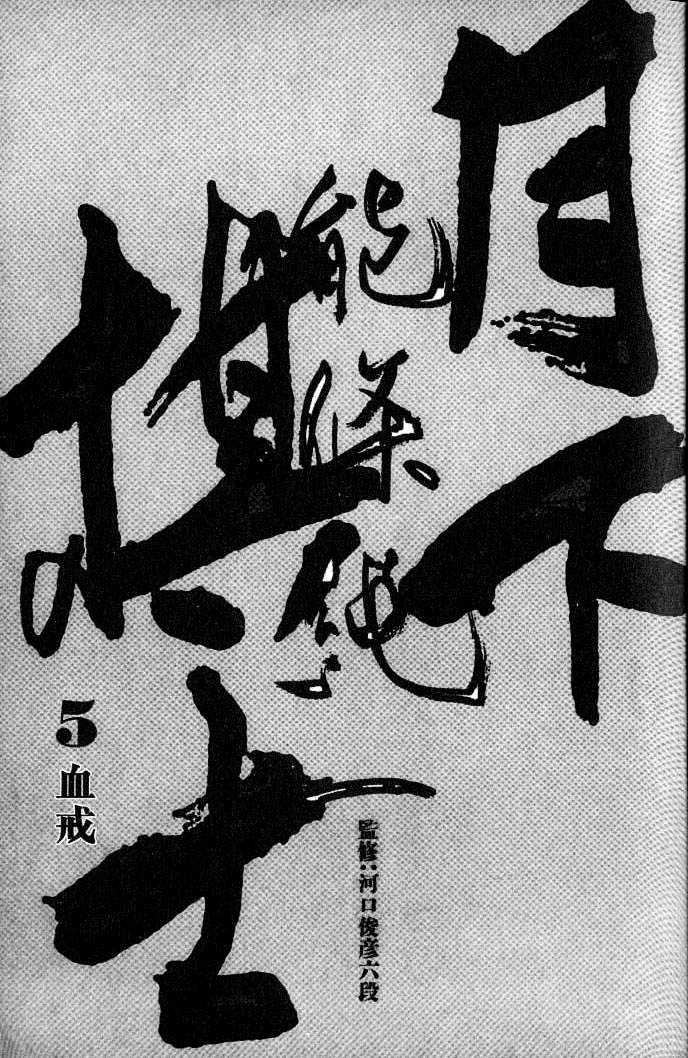 月下
棋士
能條純一
監修:河口俊彦六段
5
血戒